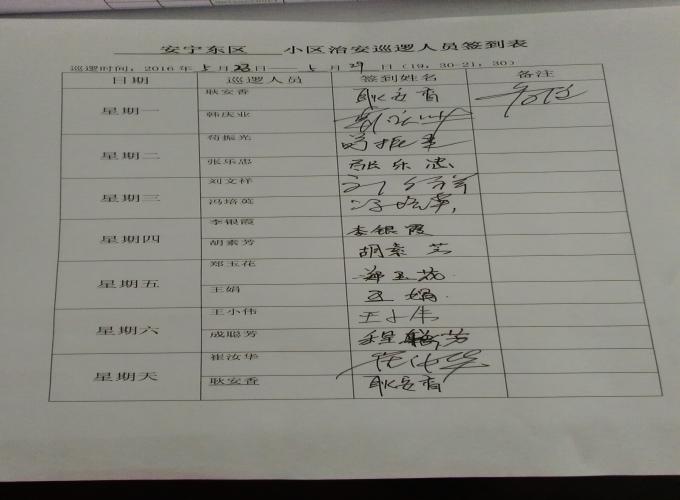 安宁东区 小区治安巡逻人员签到表
巡逻时间：2016年5月23日——5月29日（19：30-21：30）
日期 巡逻人员 签到姓名 备注
星期一 耿安香 耿安香
韩庆业
星期二 荀振光 荀振光
张乐忠 张乐忠
星期三 刘文祥 刘文祥
冯培英
星期四 李银霞 李银霞
胡素芳 胡素芳
星期五 郑玉花 郑玉花
王娟 王娟
星期六 王小伟 王小伟
成聪芳 程聪芳
星期天 崔汝华 崔汝华
耿安香 耿安香